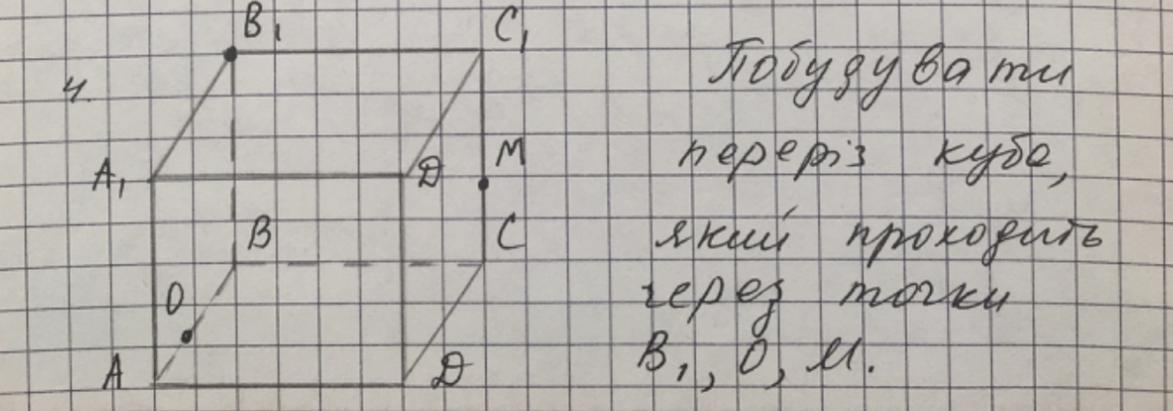 4.
B₁
C₁
A₁
D
M
B
C
O
A
D
Побудувати
переріз куба,
який проходить
через точки
B₁, O, M.